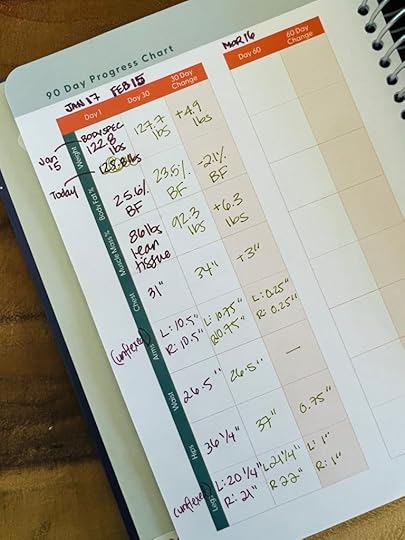 90 Day Progress Chart
JAN 17 FEB 15 MAR 16
Day 1 Day 30 30 Day Change Day 60 60 Day Change
Jan 15
Today
Weight BODYSPEC 122.8 lbs 127.7 lbs +4.9 lbs
Body Fat % 25.6% BF 23.5% BF -2.1% BF
Muscle Mass % 86 lbs lean tissue 92.3 lbs +6.3 lbs
Chest 31" 34" +3"
(unflexed) Arms L: 10.5" R: 10.5" L: 10.75" R: 10.75" L: 0.25" R: 0.25"
Waist 26.5" 26.5" —
Hips 36 1/4" 37" 0.75"
(unflexed) L: 20 1/4" R: 21" L: 21 1/4" R 22" L: 1" R: 1"